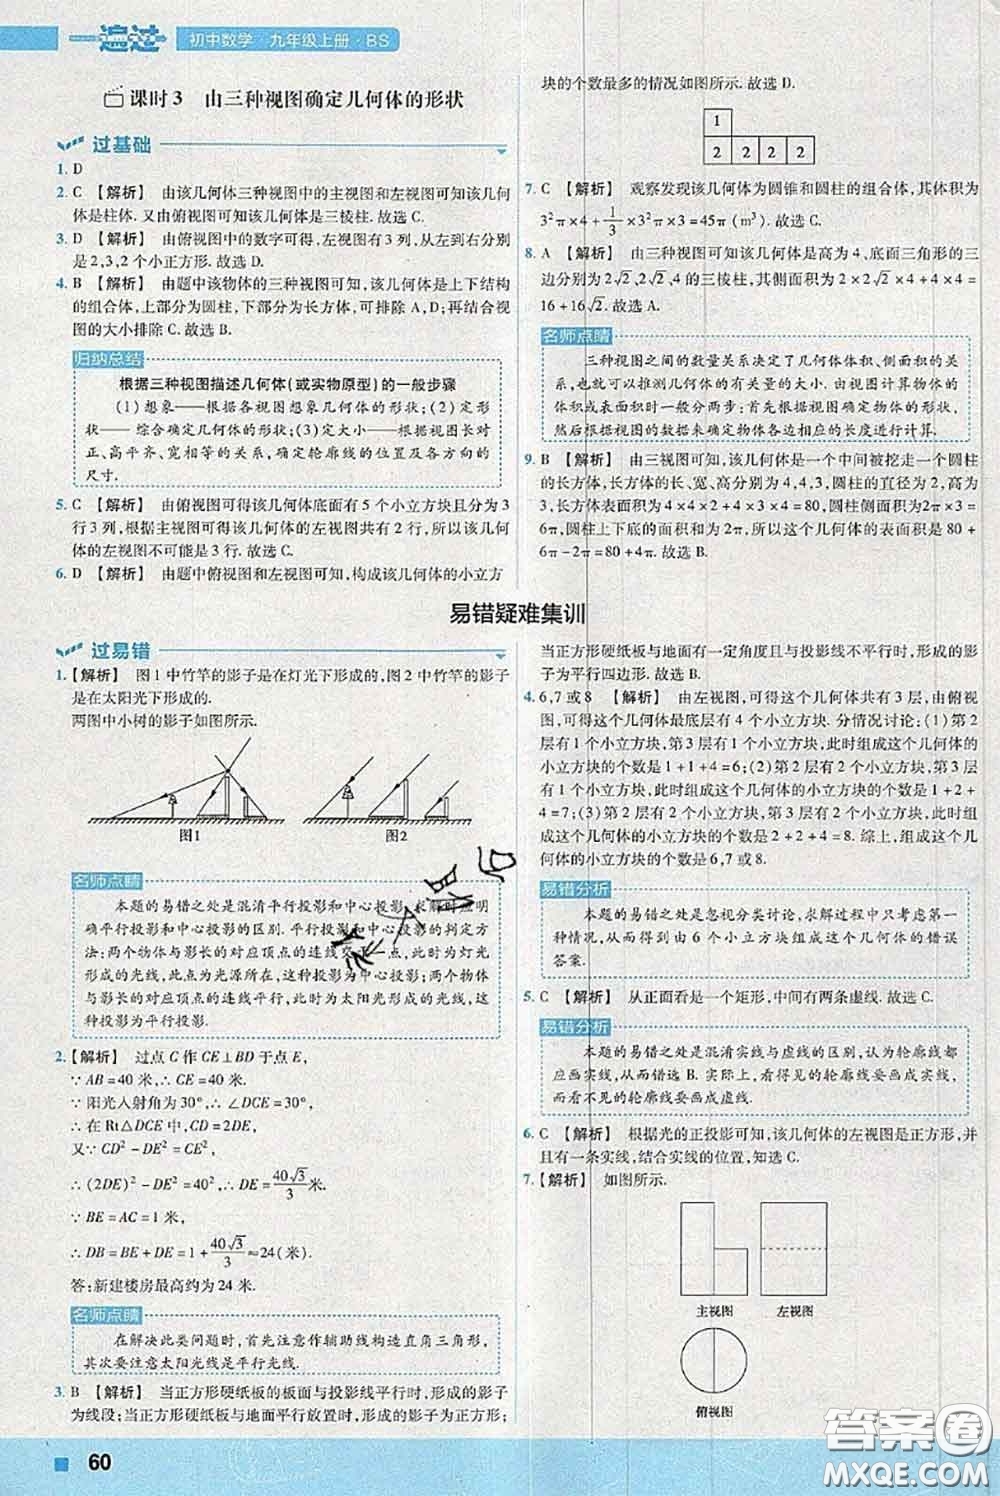 一遍过 初中数学·九年级上册·BS
课时3 由三种视图确定几何体的形状
过基础
1. D
2. C 【解析】 由该几何体三种视图中的主视图和左视图可知该几何
体是柱体. 又由俯视图可知该几何体是三棱柱. 故选 C.
3. D 【解析】 由俯视图中的数字可得,左视图有 3 列,从左到右分别
是 2,3,2 个小正方形. 故选 D.
4. B 【解析】 由题中该物体的三种视图可知,该几何体是上下结构
的组合体,上部分为圆柱,下部分为长方体,可排除 A,D;再结合视
图的大小排除 C. 故选 B.
归纳总结
根据三种视图描述几何体(或实物原型)的一般步骤
(1)想象——根据各视图想象几何体的形状;(2)定形
状——综合确定几何体的形状;(3)定大小——根据“长对
正、高平齐、宽相等”的关系,确定轮廓线的位置及各方向的
尺寸.
5. C 【解析】 由俯视图可得该几何体底面有 5 个小立方块且分为 3
行 3 列,根据主视图可得该几何体的左视图共有 2 行,所以该几何
体的左视图不可能是 3 行. 故选 C.
6. D 【解析】 由题中俯视图和左视图可知,构成该几何体的小立方
块的个数最多的情况如图所示. 故选 D.
1
2 2 2 2
7. C 【解析】 观察发现该几何体为圆锥和圆柱的组合体,其体积为
3²π×4+1/3×3²π×3=45π(m³). 故选 C.
8. A 【解析】 由三种视图可知该几何体是高为 4,底面三角形的三
边分别为 2√2,2√2,4 的三棱柱,其侧面积为 2×2√2×4+4×4=
16+16√2. 故选 A.
名师点睛
三种视图之间的数量关系决定了几何体体积、侧面积的关
系,也就可以推测几何体的有关量的大小. 由视图计算物体的
体积或表面积时一般分两步:首先根据视图确定物体的形状,
然后根据视图的数据来确定物体各边相应的长度进行计算.
9. B 【解析】 由三视图可知,该几何体是一个中间被挖走一个圆柱
的长方体,长方体的长、宽、高分别为 4,4,3,圆柱的直径为 2,高为
3,长方体表面积为 4×4×2+4×3×4=80,圆柱侧面积为 2π×3=
6π,圆柱上下底的面积和为 2π,所以这个几何体的表面积是 80+
6π-2π=80+4π. 故选 B.
易错疑难集训
过易错
1. 【解析】 图 1 中竹竿的影子是在灯光下形成的,图 2 中竹竿的影子
是在太阳光下形成的.
两图中小树的影子如图所示.
图1 图2
名师点睛
本题的易错之处是混淆平行投影和中心投影,求解时应明
确平行投影和中心投影的区别. 平行投影和中心投影的判定方
法:两个物体与影长的对应顶点的连线交于一点,此时为灯光
形成的光线,此点为光源所在,这种投影为中心投影;两个物体
与影长的对应顶点的连线平行,此时为太阳光形成的光线,这
种投影为平行投影.
2. 【解析】 过点 C 作 CE⊥BD 于点 E,
∵AB=40 米,∴CE=40 米.
∵阳光入射角为 30°,∴∠DCE=30°,
∴在 Rt△DCE 中,CD=2DE,
∵CD²-DE²=CE²,
∴(2DE)²-DE²=40²,∴DE=40√3/3 米.
∵BE=AC=1 米,
∴DB=BE+DE=1+40√3/3≈24(米).
答:新建楼房最高约为 24 米.
名师点睛
在解决此类问题时,首先注意作辅助线构造直角三角形,
其次要注意太阳光线是平行光线.
3. B 【解析】 当正方形硬纸板的板面与投影线平行时,形成的影子
为线段;当正方形硬纸板与地面平行放置时,形成的影子为正方形;
当正方形硬纸板与地面有一定角度且与投影线不平行时,形成的影
子为平行四边形. 故选 A.
4. 6,7 或 8 【解析】 由左视图,可得这个几何体共有 3 层,由俯视
图,可得这个几何体最底层有 4 个小立方块. 分情况讨论:(1)第 2
层有 1 个小立方块,第 3 层有 1 个小立方块,此时组成这个几何体的
小立方块的个数是 1+1+4=6;(2)第 2 层有 2 个小立方块,第 3 层
有 1 个小立方块,此时组成这个几何体的小立方块的个数是 1+2+
4=7;(3)第 2 层有 2 个小立方块,第 3 层有 2 个小立方块,此时组
成这个几何体的小立方块的个数是 2+2+4=8. 综上,组成这个几
何体的小立方块的个数是 6,7 或 8.
易错分析
本题的易错之处是忽视分类讨论,求解过程中只考虑第一
种情况,从而得出由 6 个小立方块组成这个几何体的错误
答案.
5. C 【解析】 从正面看是一个矩形,中间有两条虚线. 故选 C.
易错分析
本题的易错之处是混淆实线与虚线的区别,认为轮廓线都
应画实线,从而错选 B. 实际上,看得见的轮廓线要画成实线,
而看不见的轮廓线要画成虚线.
6. C 【解析】 根据光的正投影可知,该几何体的左视图是正方形,并
且有一条实线,结合实线的位置,知选 C.
7. 【解析】 如图所示.
主视图 左视图
俯视图
60
答案圈
MXQE.COM